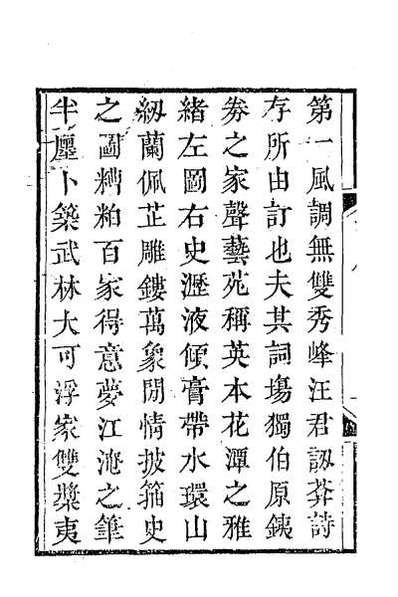 第一風調無雙秀峰汪君詩
存所由訂也夫其詞場獨伯原銕
券之家聲藝苑稱英本花潭之雅
緒左圖右史瀝液傾膏帶水環山
紉蘭佩芷雕鏤萬象閒情披箱史
之圖糟粕百家得意夢江淹之筆
半廛卜築武林大可浮家雙槳夷